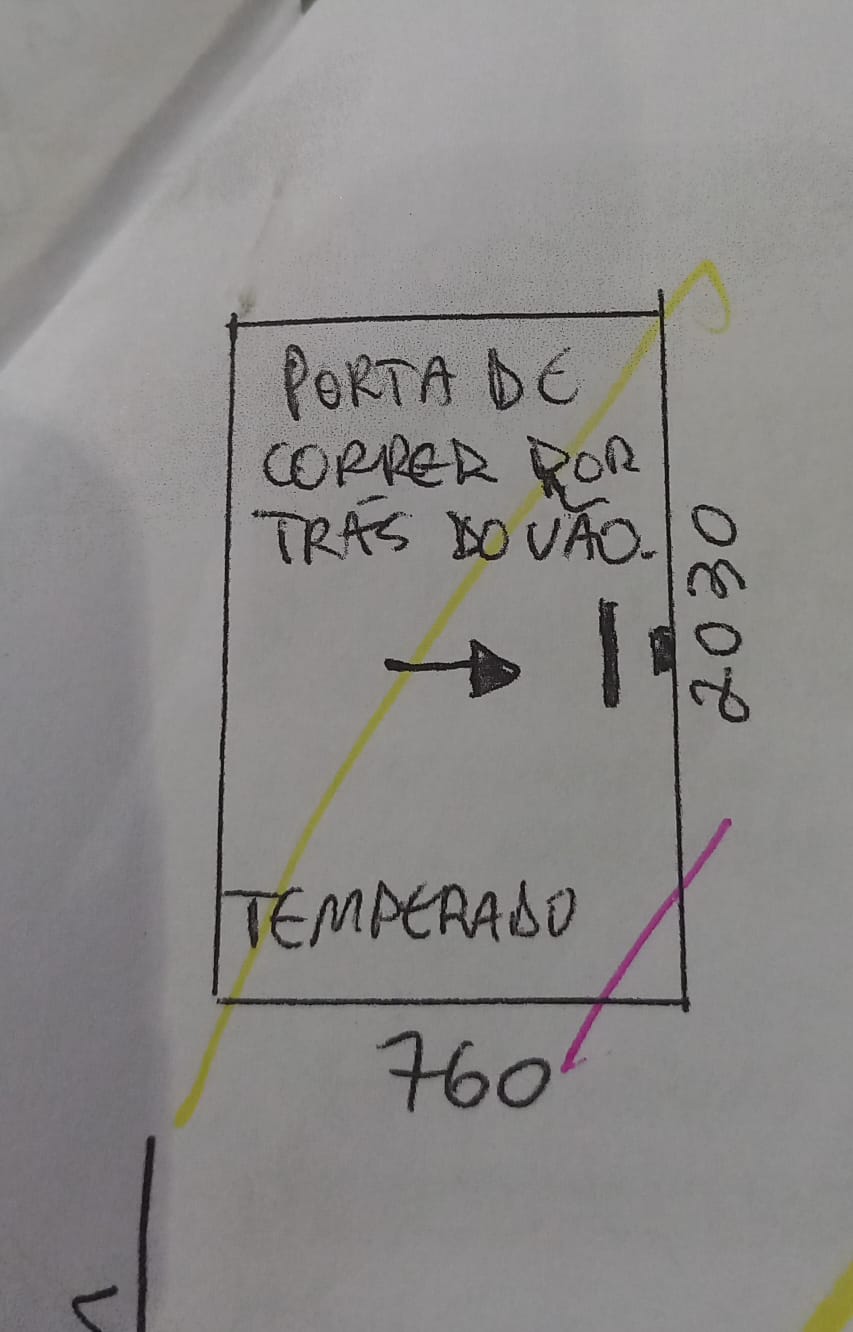 PORTA DE
CORRER POR
TRÁS DO VÃO.
2030
TEMPERADO
760